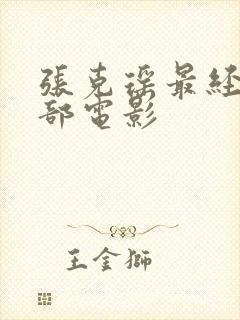 張克瑶最经
部電影
王金獅